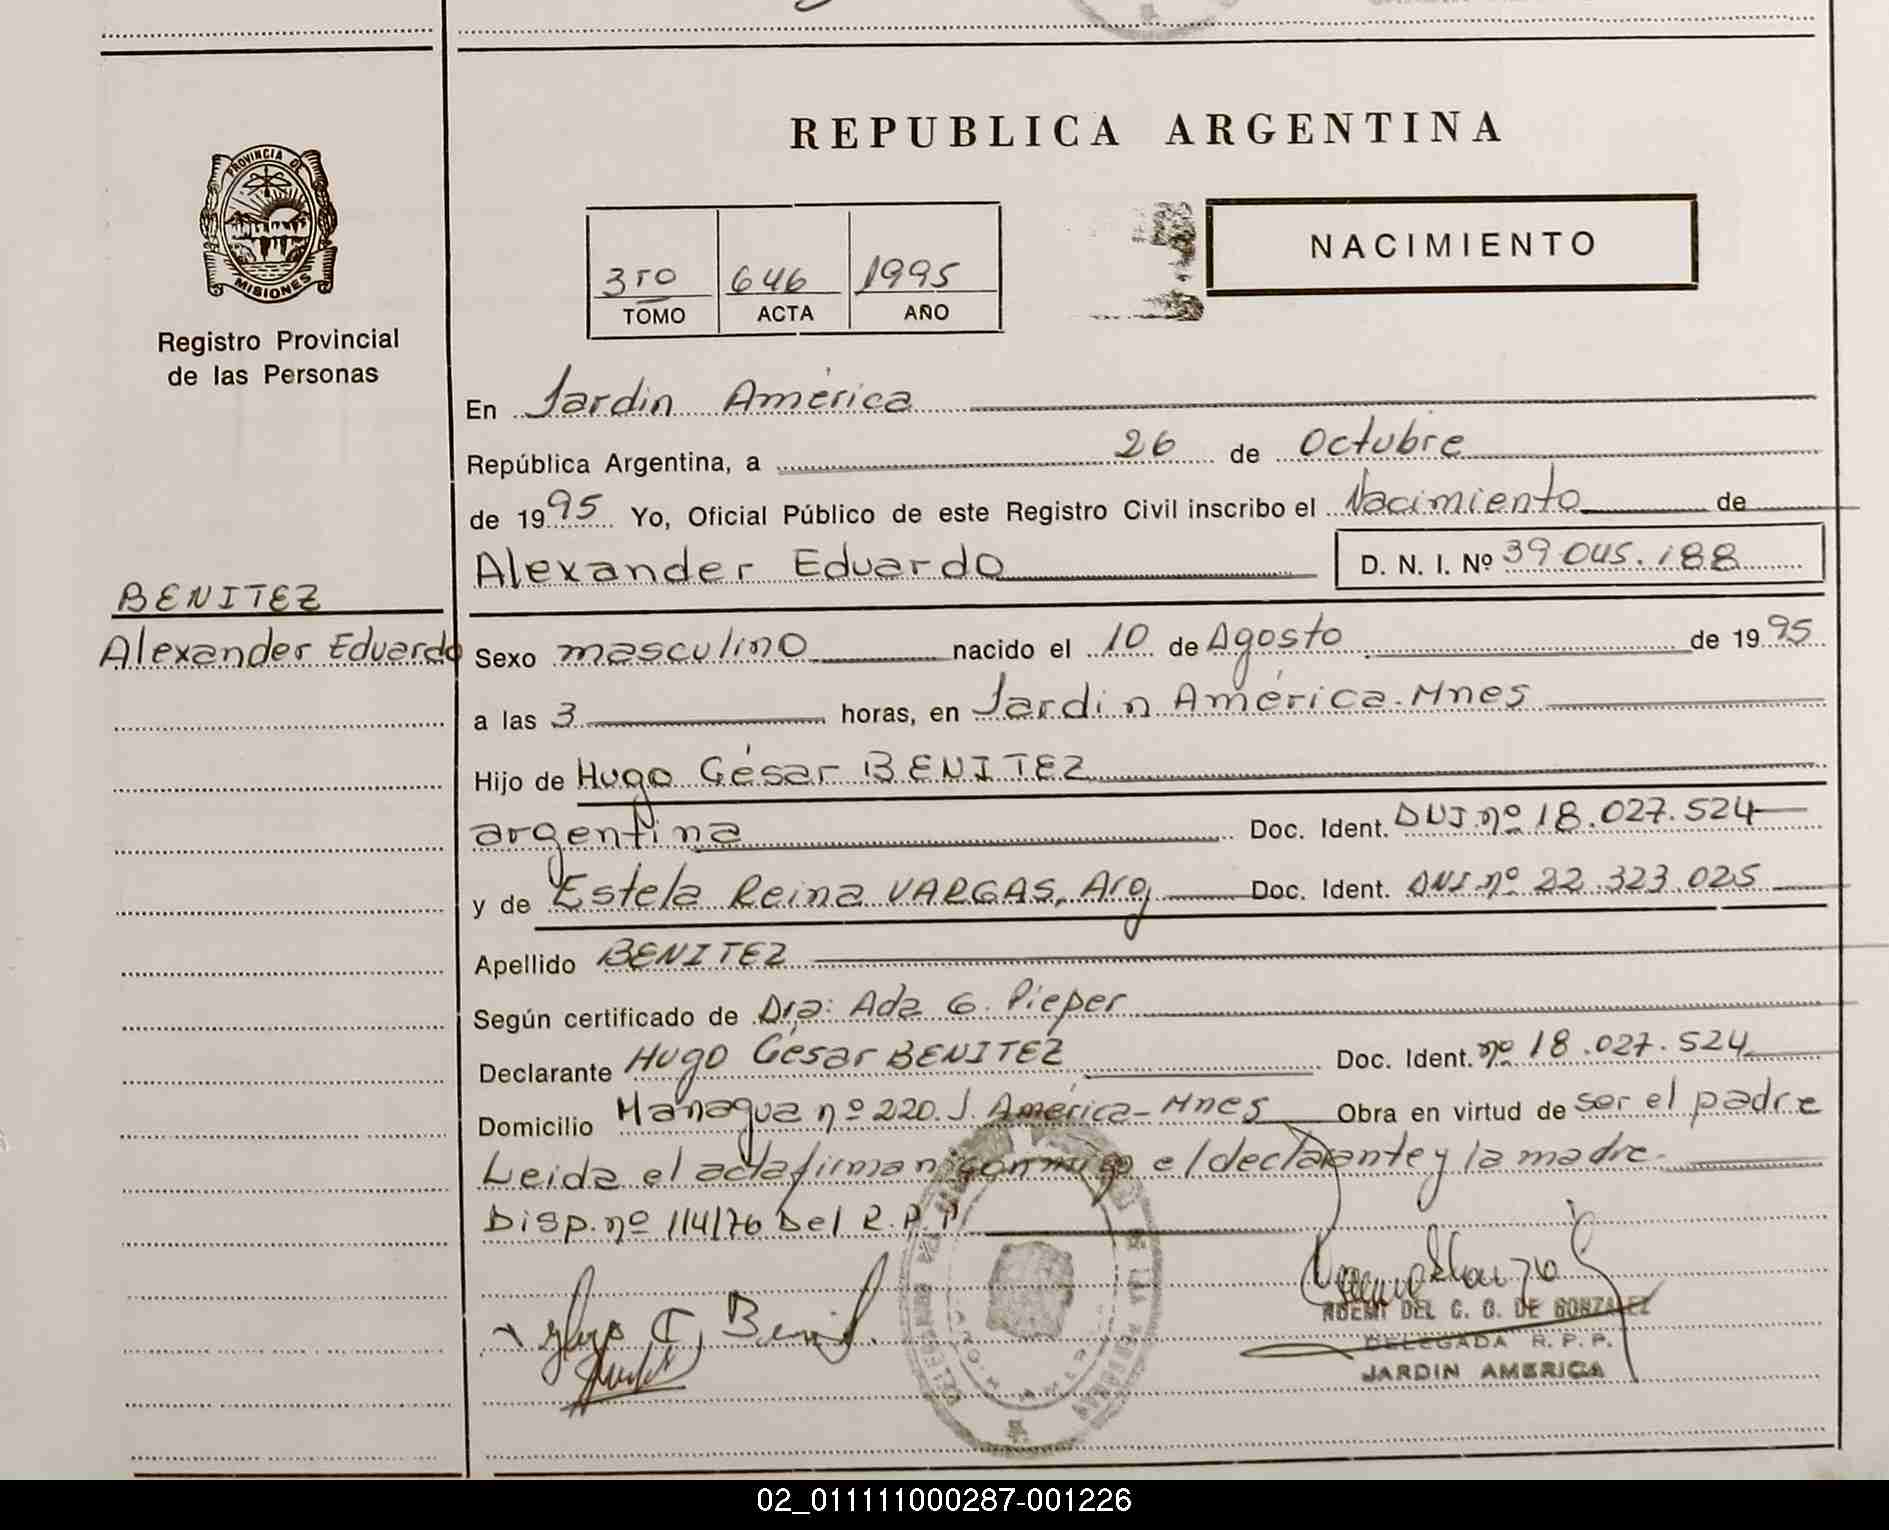 PROVINCIA DE
MISIONES
Registro Provincial
de las Personas
BENITEZ
Alexander Eduardo
REPUBLICA ARGENTINA
3ro 646 1995
TOMO ACTA AÑO
NACIMIENTO
En Jardin América
República Argentina, a 26 de Octubre
de 1995 Yo, Oficial Público de este Registro Civil inscribo el Nacimiento de
Alexander Eduardo D. N. I. Nº 39.045.188
Sexo masculino nacido el 10 de Agosto de 1995
a las 3 horas, en Jardin América-Mnes
Hijo de Hugo César BENITEZ
argentina Doc. Ident. DNI nº 18.027.524
y de Estela Reina VARGAS, Arg Doc. Ident. DNI nº 22.323.025
Apellido BENITEZ
Según certificado de Dra: Ada G. Pieper
Declarante Hugo César BENITEZ Doc. Ident. nº 18.027.524
Domicilio Managua nº 220. J. América-Mnes Obra en virtud de ser el padre
Leida el acta firman conmigo el declarante y la madre-
Disp. nº 114/76 Del R.P.P.
NOEMI DEL C. G. DE GONZALEZ
DELEGADA R.P.P.
JARDIN AMERICA
02_011111000287-001226